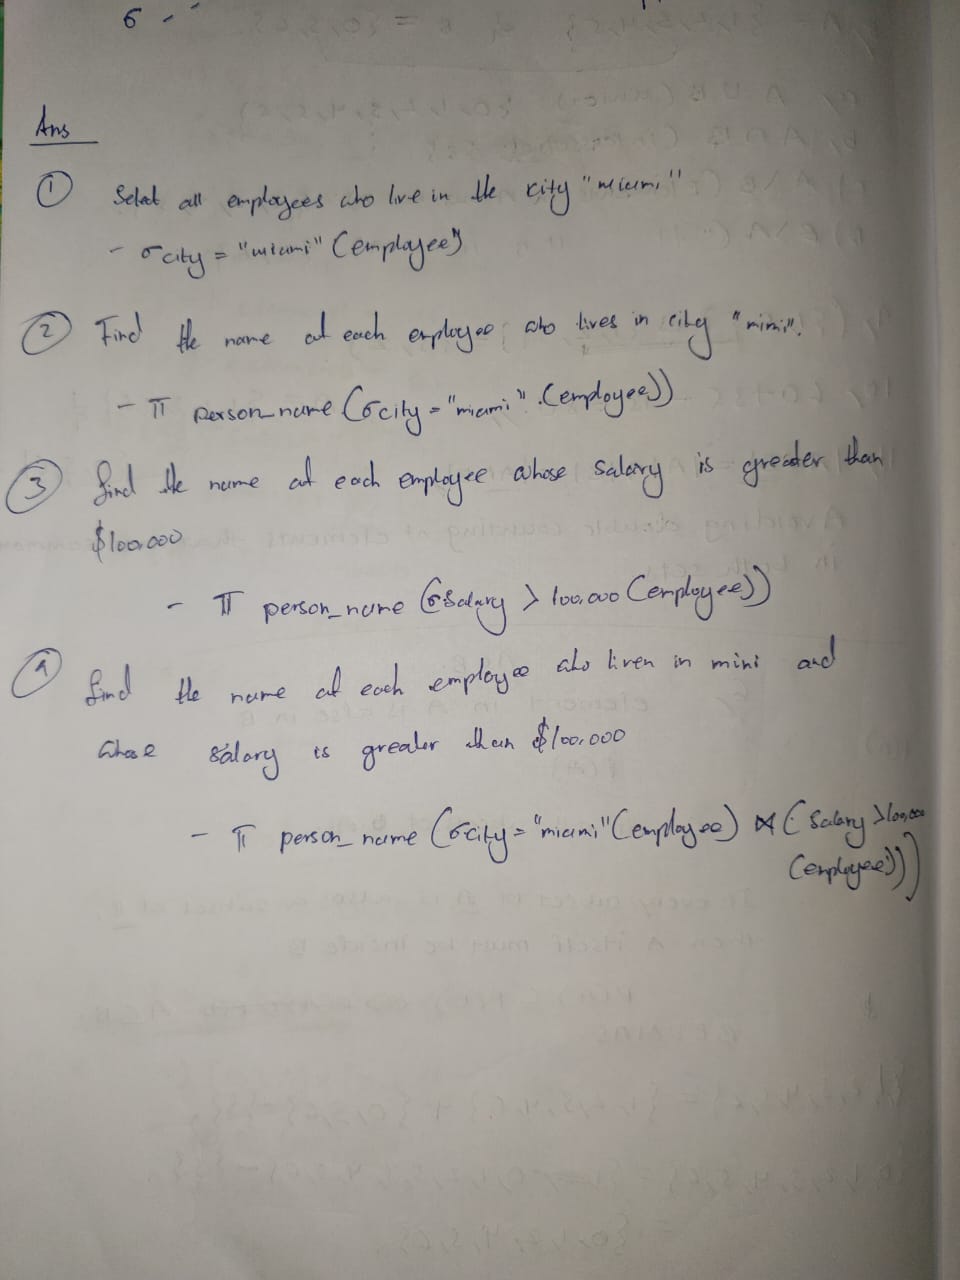 6 - -
Ans
① Select all employees who live in the city "miami"
- σcity = "miami" (employee)
② Find the name at each employee who lives in city "mimi".
- π person_name (σcity = "miami" (employee))
③ find the name at each employee whose salary is greater than
$100,000
- π person_name (σSalary > 100,000 (employee))
the name at each employee who liven in mini and
find
whose salary is greater than $100,000
- π person_name (σcity = "miami" (employee) ⋈ (salary > 100,000
(employee)))